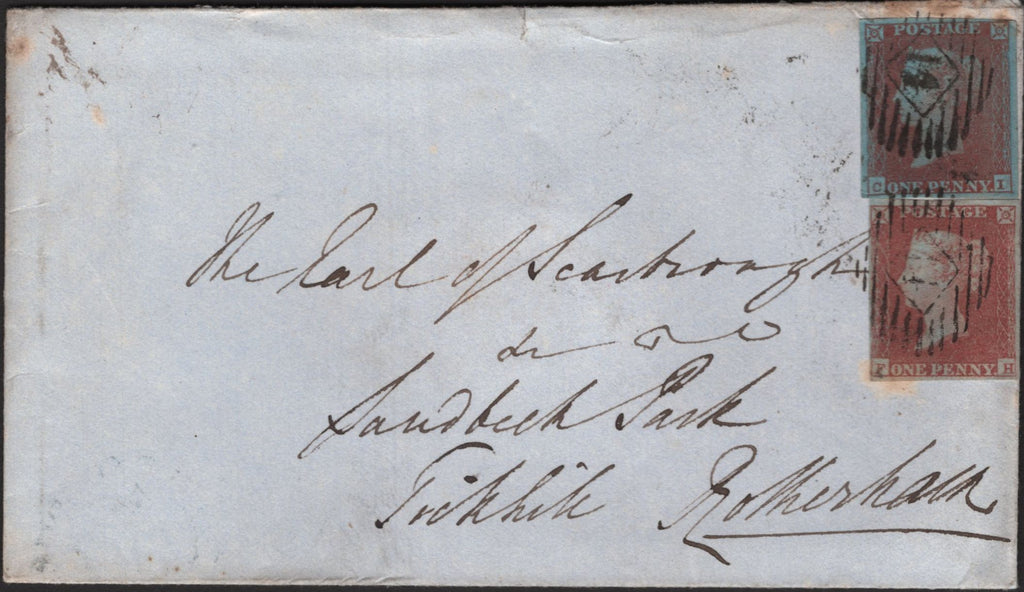 POSTAGE
C ONE PENNY I
POSTAGE
F ONE PENNY H
The Earl of Scarbrough
&c &c
Sandbeck Park
Tickhill Rotherham